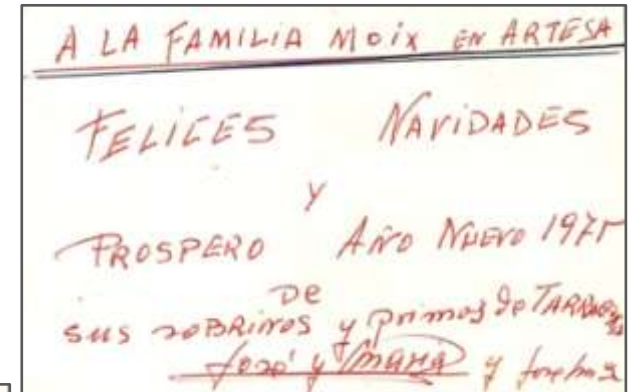 A LA FAMILIA MOIX EN ARTESA
FELICES NAVIDADES
Y
PROSPERO AÑO NUEVO 1975
DE
sus soBRINOS y primos de
José y MARÍA y